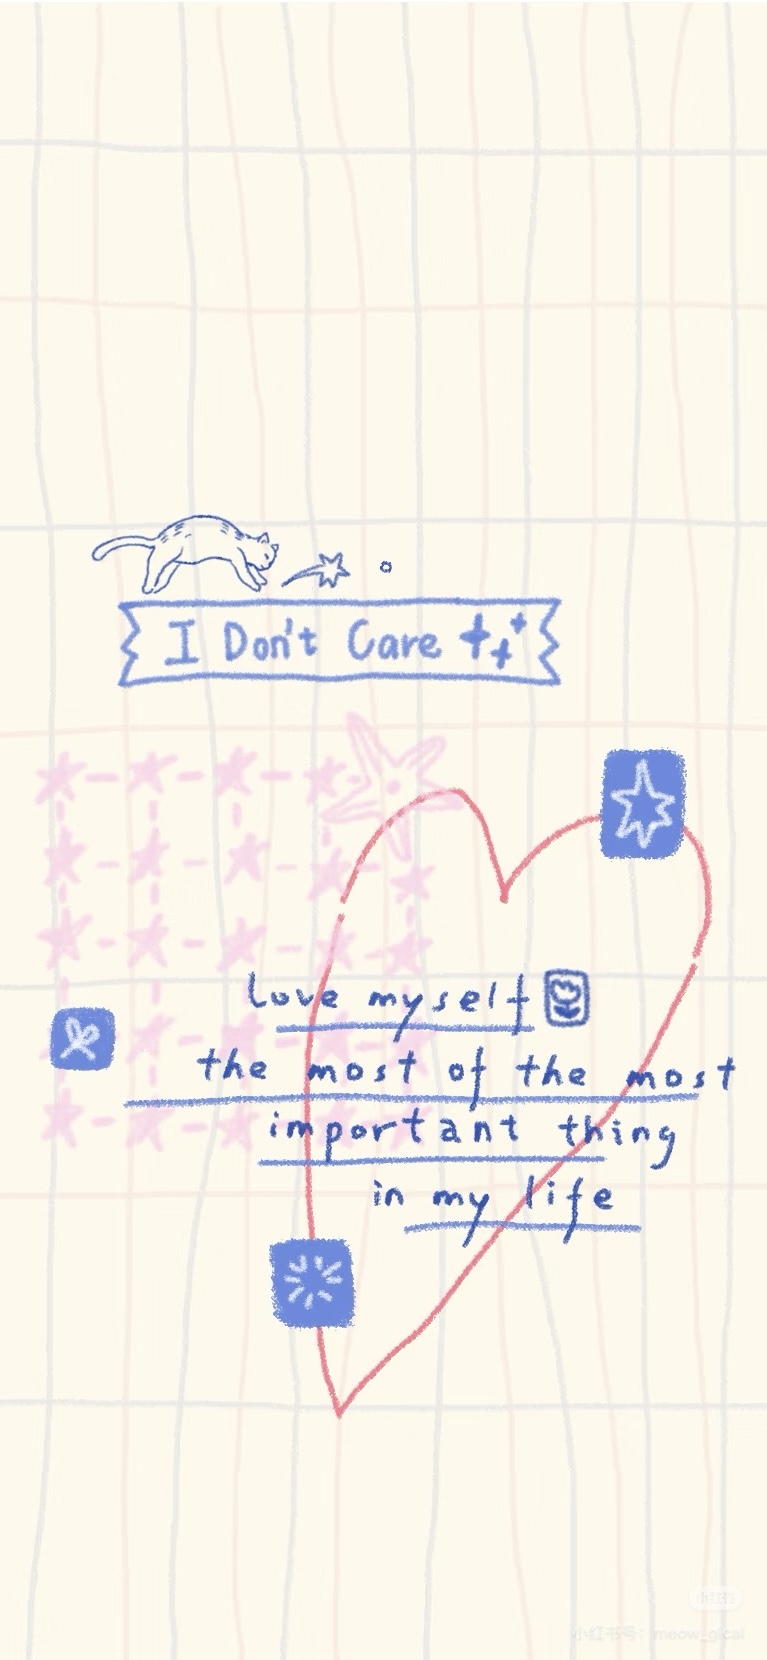 I Don't Care
love myself
the most of the most
important thing
in my life
小红书
小红书号：meow_gical